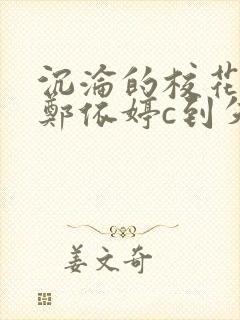 沉沦的校花
郑依婷c到
姜文奇